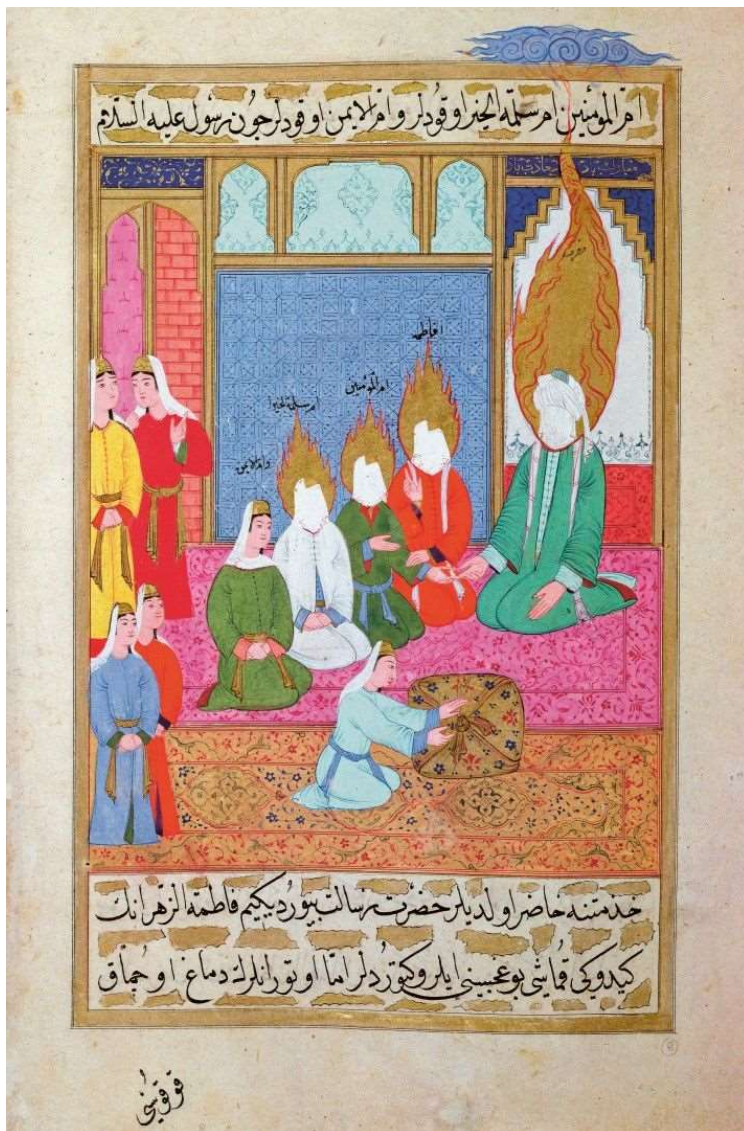 امّ المؤمنين امّ سلمة الخير اوقودلر و امّ الايمن اوقودلر چون رسول عليه السّلام
حضرت
فاطمه
امّ المؤمنين
امّ سلمة الخير
وامّ الايمن
خدمتنه حاضر اولديلر حضرت رسالت بيوردیكيم فاطمة الزّهرانك
كيدوكى قماشى بوغجسينى ايلرو كتوردلر امّا اوتورانلرك دماغ اوچماق
قوقوسينى